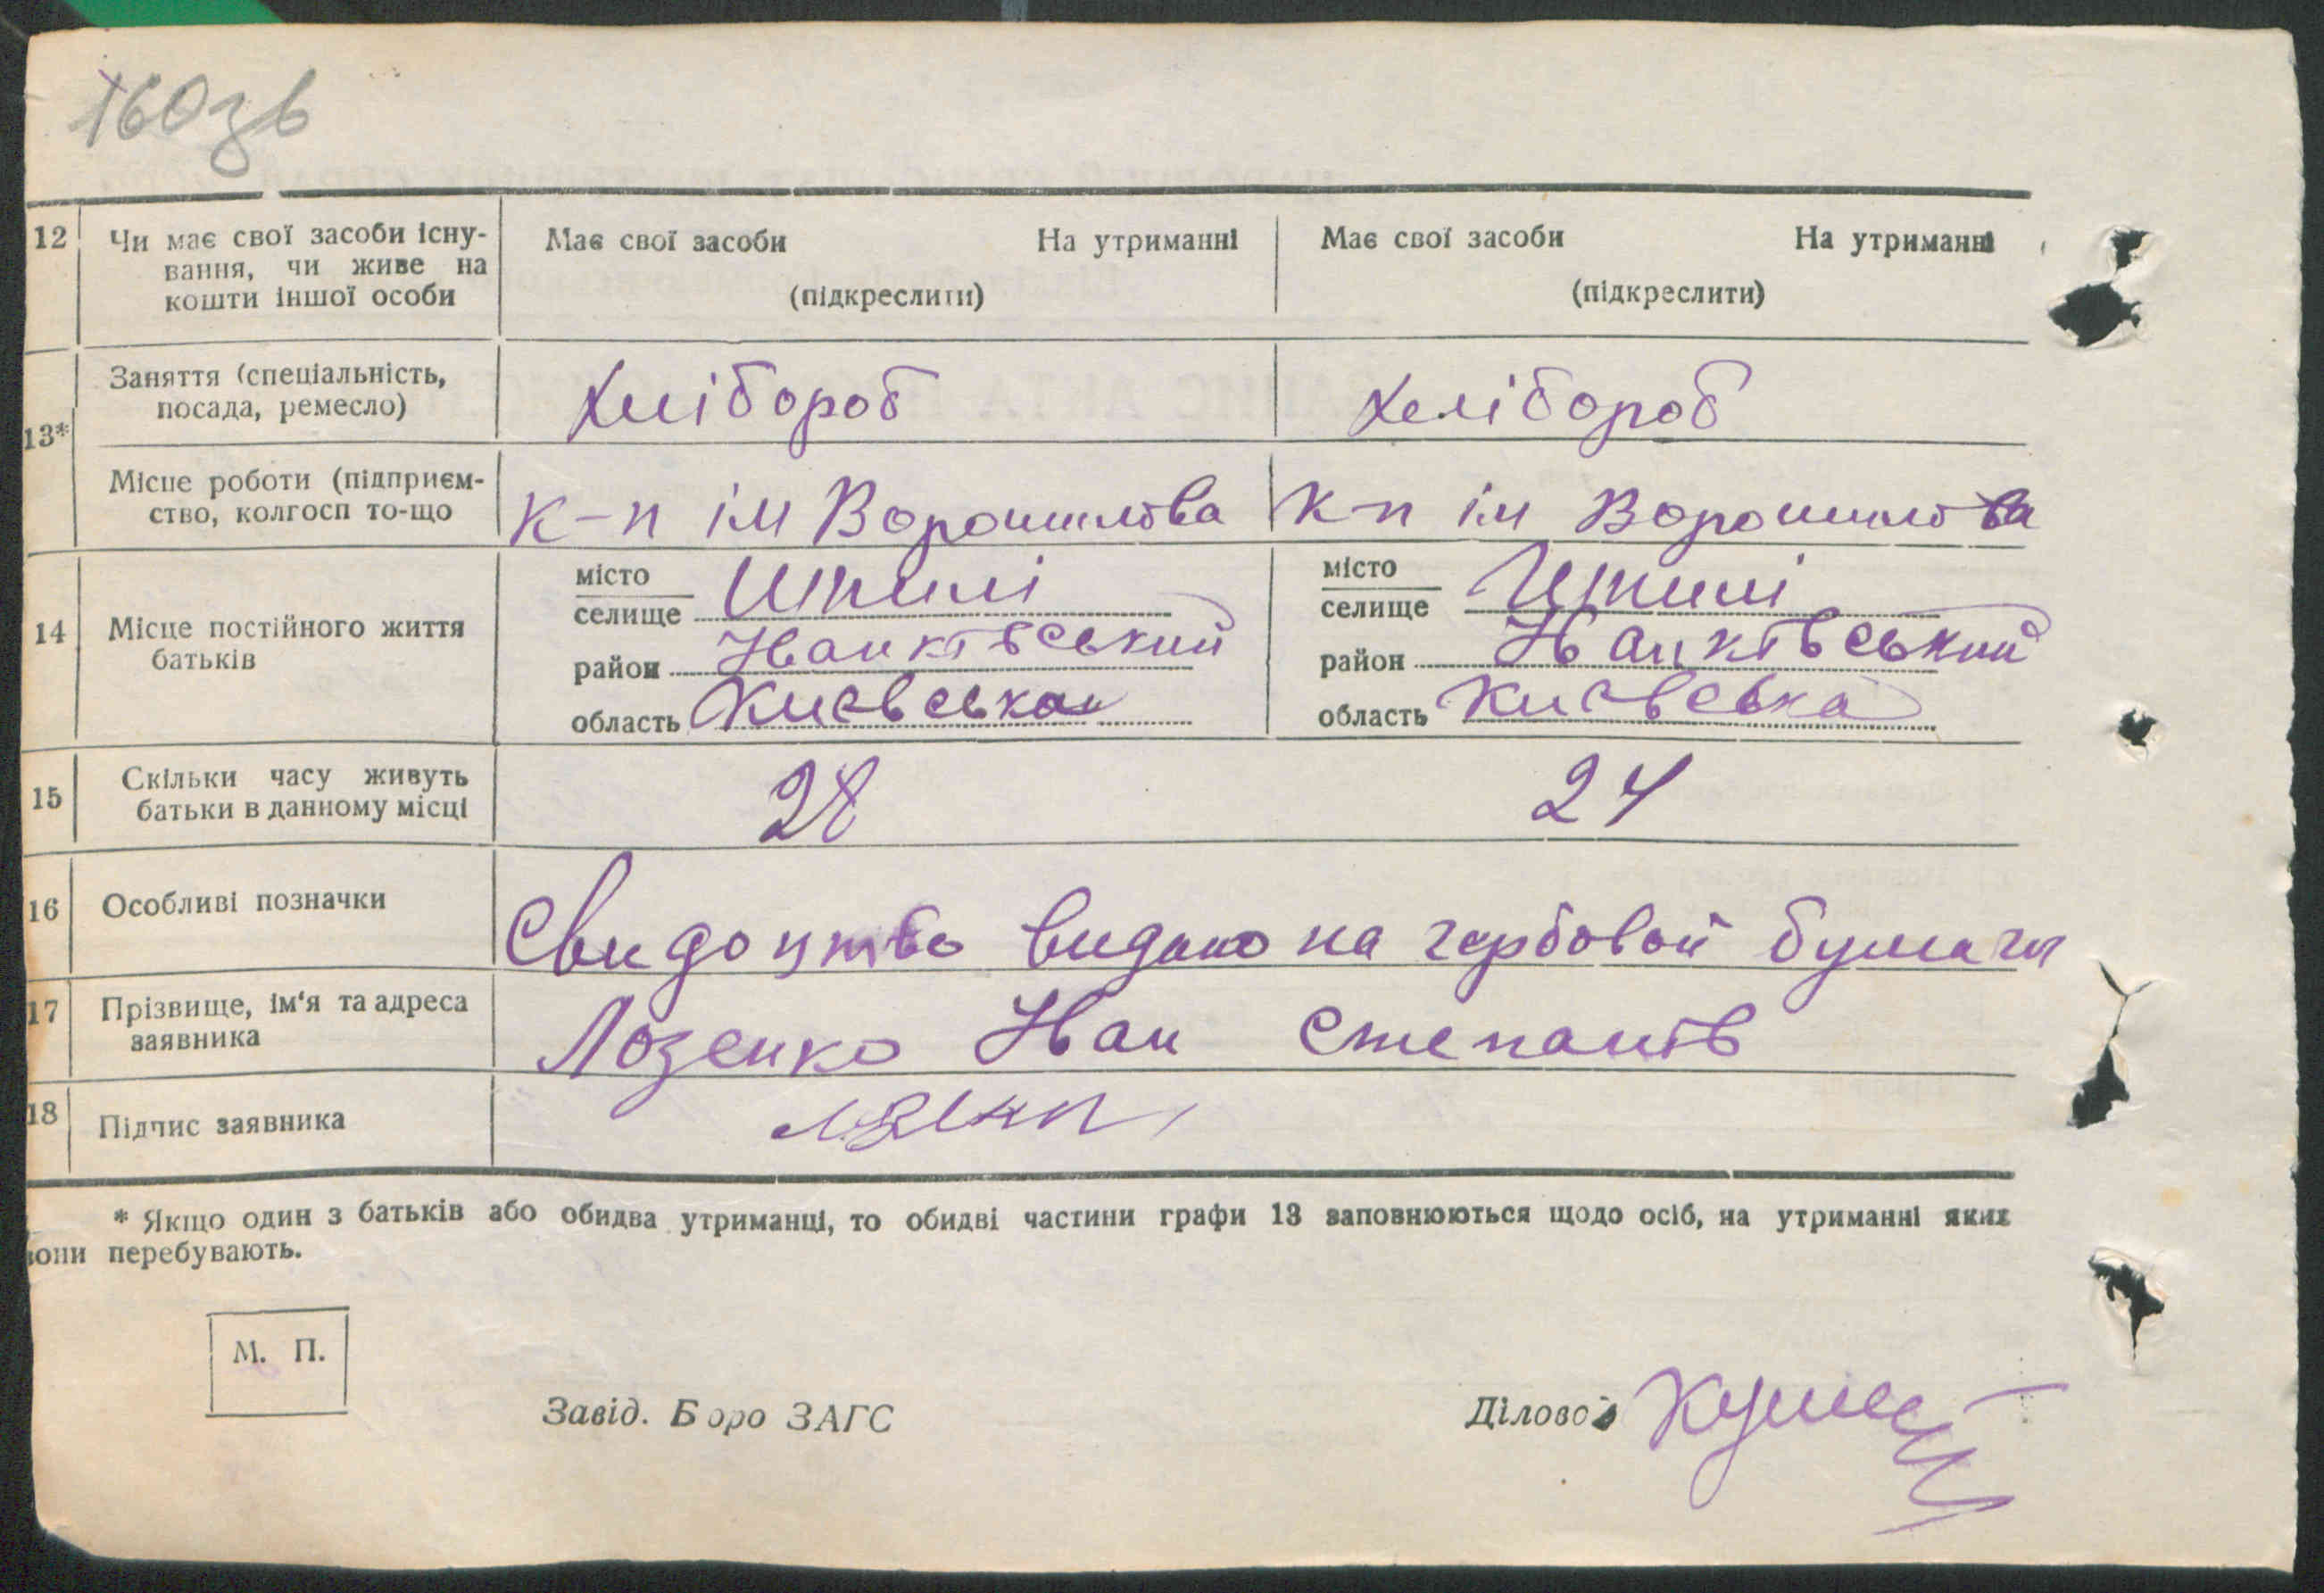 160зв
12 Чи має свої засоби існу- Має свої засоби На утриманні Має свої засоби На утриманні
вання, чи живе на
кошти іншої особи (підкреслити) (підкреслити)
13* Заняття (спеціальність, Хлібороб Хлібороб
посада, ремесло)
Місце роботи (підприєм- К-п ім Ворошилова К-п ім Ворошилова
ство, колгосп то-що
місто Шпилі місто Шпилі
селище селище
14 Місце постійного життя район Іванківський район Іванківський
батьків
область Київська область Київська
15 Скільки часу живуть 28 24
батьки в данному місці
16 Особливі позначки Свидоцтво видано на гербовой бумаги
17 Прізвище, ім'я та адреса Лозенко Іван Степанів
заявника
18 Підпис заявника
* Якщо один з батьків або обидва утриманці, то обидві частини графи 13 заповнюються щодо осіб, на утриманні яких
вони перебувають.
М. П.
Завід. Бюро ЗАГС Діловод